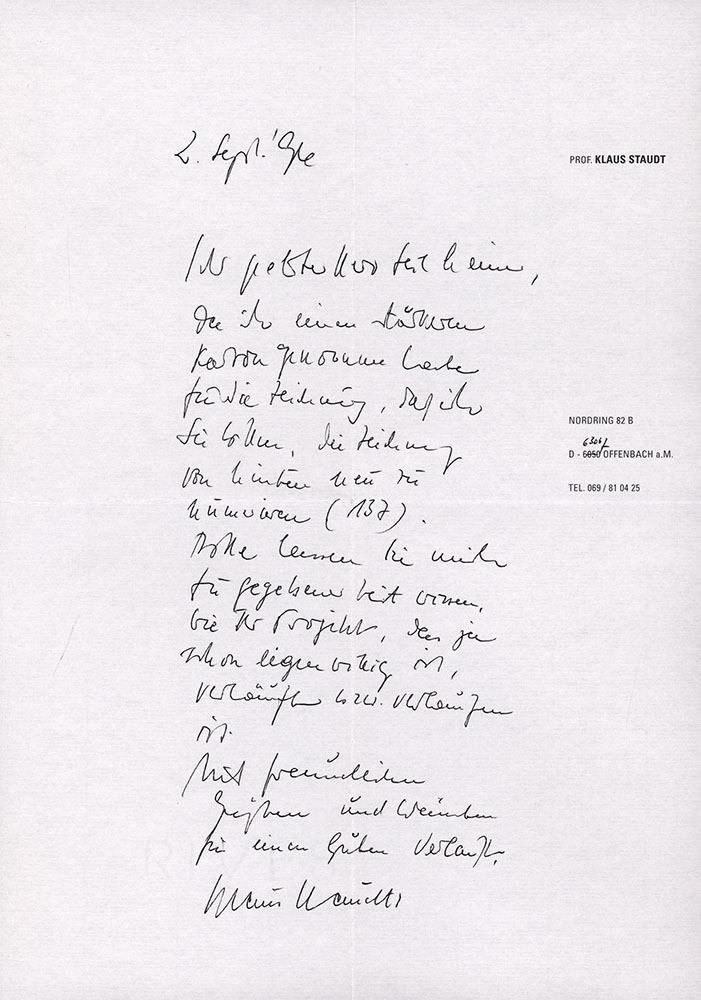 2. Sept. '
PROF. KLAUS STAUDT
Sehr geehrter Herr
da ich einen stärkeren
Karton genommen habe
für die Zeichnung, darf ich
Sie bitten, die Zeichnung
von hinten neu zu
numerieren (137).
Bitte lassen Sie mich
zu gegebener Zeit wissen,
wie Ihr Projekt, das ja
schon eigenwillig ist,
verläuft bzw. verlaufen
ist.
Mit freundlichen
Grüßen und Wünschen
für einen guten Verlauf.
Klaus Staudt
NORDRING 82 B
6306
D - 6050 OFFENBACH a.M.
TEL. 069 / 81 04 25